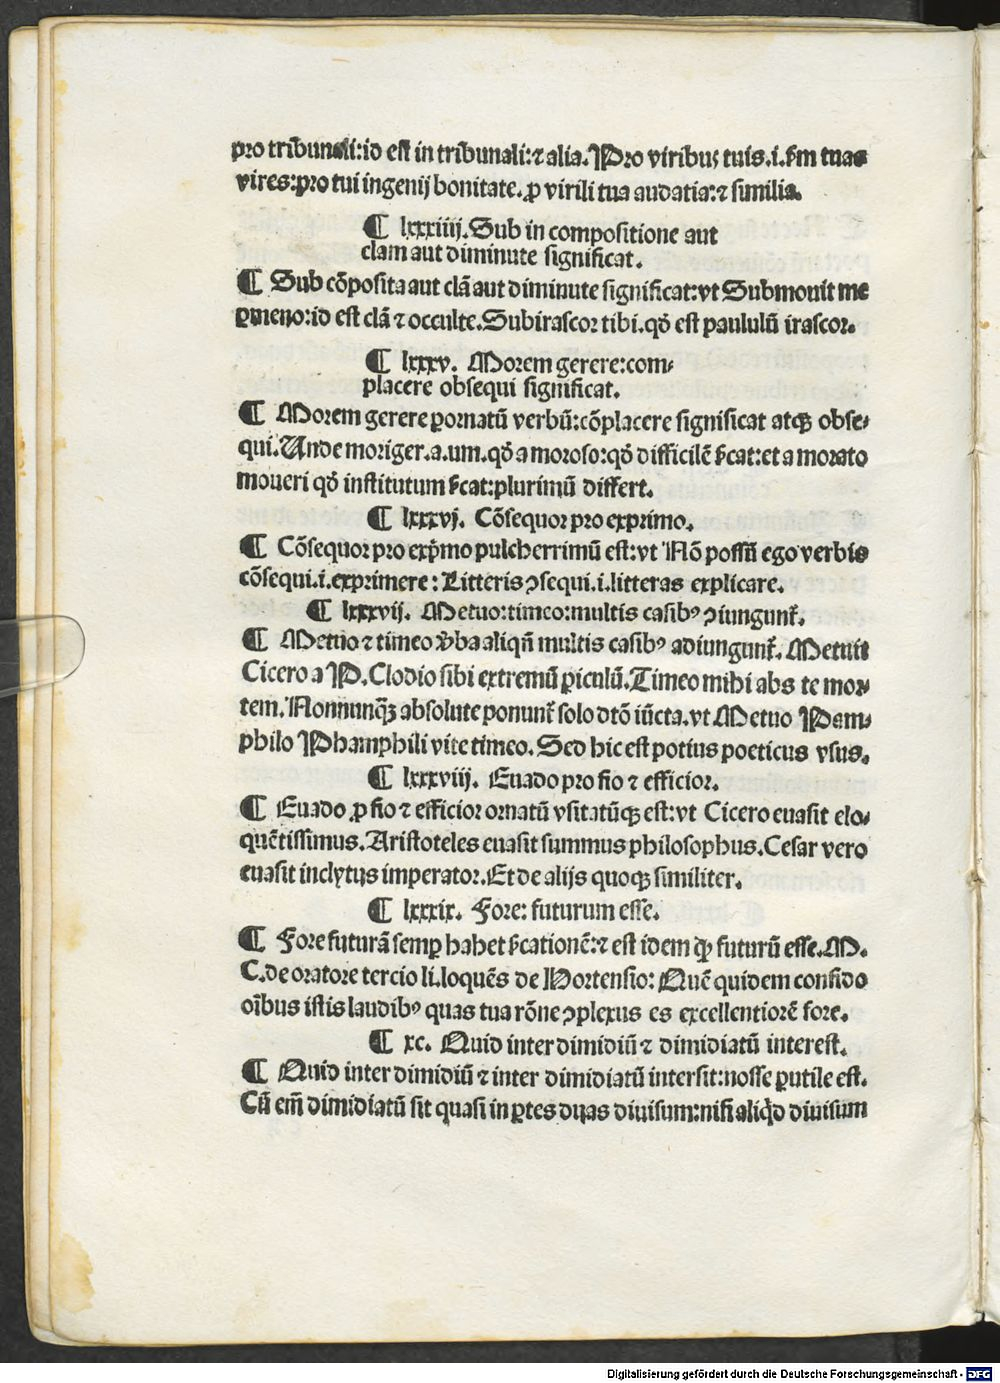 pro tribunali:id est in tribunali:⁊ alia.Pro viribus tuis.i.ẜm tuas
vires:pro tui ingenij bonitate.ꝓ virili tua audatia:⁊ similia.
¶ lxxxiiij.Sub in compositione aut
clam aut diminute significat.
¶ Sub cōposita aut clā aut diminute significat:vt Submouit me
ꝑmeno:id est clā ⁊ occulte.Subirascor tibi.qd̄ est paululū irascor.
¶ lxxxv. Morem gerere:com-
placere obsequi significat.
¶ Morem gerere ꝑornatū verbū:cōplacere significat atqꝫ obse-
qui.Unde moriger.a.um.qd̄ a moroso:qd̄ difficilē ẜcat:et a morato
moueri qd̄ institutum ẜcat:plurimū differt.
¶ lxxxvj. Cōsequor pro exprimo.
¶ Cōsequor pro exp̄mo pulcherrimū est:vt Nō possū ego verbis
cōsequi.i.exprimere:Litteris ꝯsequi.i.litteras explicare.
¶ lxxxvij. Metuo:timeo:multis casibꝰ ꝯiungunt̄.
¶ Metuo ⁊ timeo v̄ba aliqn̄ multis casibꝰ adiungunt̄.Metuit
Cicero a P.Clodio sibi extremū ꝑiculū.Timeo mihi abs te mor-
tem.Nonnunqꝫ absolute ponunt̄ solo dtō iūcta.vt Metuo Pam-
philo Phamphili vite timeo. Sed hic est potius poeticus vsus.
¶ lxxxviij. Euado pro fio ⁊ efficior.
¶ Euado ꝓ fio ⁊ efficior ornatū vsitatūqꝫ est:vt Cicero euasit elo-
quētissimus.Aristoteles euasit summus philosophus.Cesar vero
euasit inclytus imperator.Et de alijs quoqꝫ similiter.
¶ lxxxix. Fore: futurum esse.
¶ Fore futurā semꝑ habet ẜcationē:⁊ est idem qd̄ futurū esse.M.
C.de oratore tercio li.loquēs de Hortensio: Quē quidem confido
oībus istis laudibꝰ quas tua rōne ꝯplexus es excellentiorē fore.
¶ xc. Quid inter dimidiū ⁊ dimidiatū interest.
¶ Quid inter dimidiū ⁊ inter dimidiatū intersit:nosse ꝑutile est.
Cū em̄ dimidiatū sit quasi in ꝑtes duas diuisum:nisi aliqd̄ diuisum
Digitalisierung gefördert durch die Deutsche Forschungsgemeinschaft - DFG